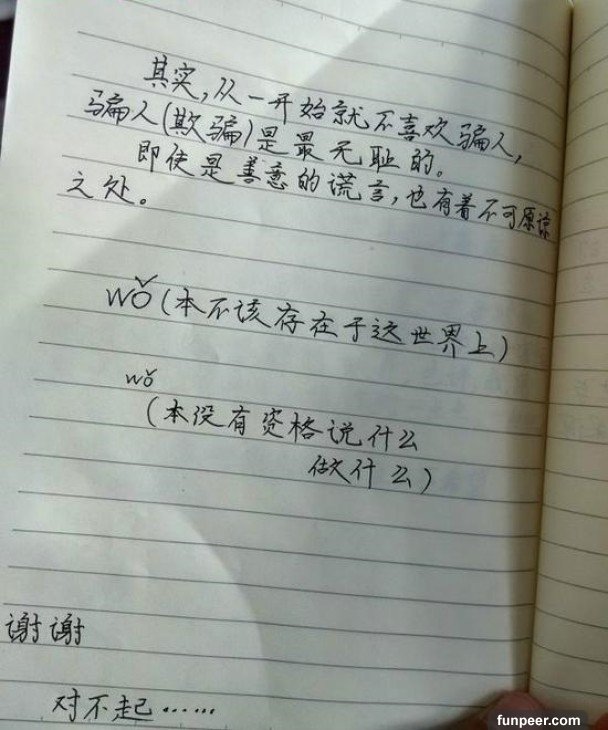 其实,从一开始就不喜欢骗人,
骗人(欺骗)是最无耻的。
即使是善意的谎言,也有着不可原谅
之处。
wǒ(本不该存在于这世界上)
wǒ
(本没有资格说什么
做什么)
谢谢
对不起……
funpeer.com